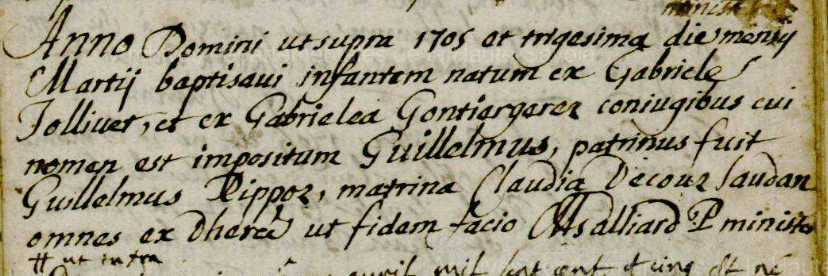 Anno Domini ut supra 1705 et trigesima die mensis
Martij baptisavi infantem natum ex Gabriele
Jollivet, et ex Gabrielea Gontiergerez coniugibus cui
nomen est impositum Guillelmus, patrinus fuit
Guillelmus Pippoz, matrina Claudia Decouz Jaudan
omnes ex Dherée ut fidem facio Alsalliard P minister
ut infra